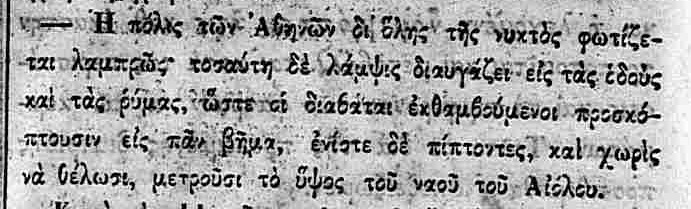 — Ἡ πόλις τῶν Ἀθηνῶν δι' ὅλης τῆς νυκτὸς φωτίζε-
ται λαμπρῶς· τοσαύτη δὲ λάμψις διαυγάζει εἰς τὰς ὁδοὺς
καὶ τὰς ῥύμας, ὥστε οἱ διαβάται ἐκθαμβούμενοι προσκό-
πτουσιν εἰς πᾶν βῆμα, ἐνίοτε δὲ πίπτοντες, καὶ χωρὶς
νὰ θέλωσι, μετροῦσι τὸ ὕψος τοῦ ναοῦ τοῦ Αἰόλου.